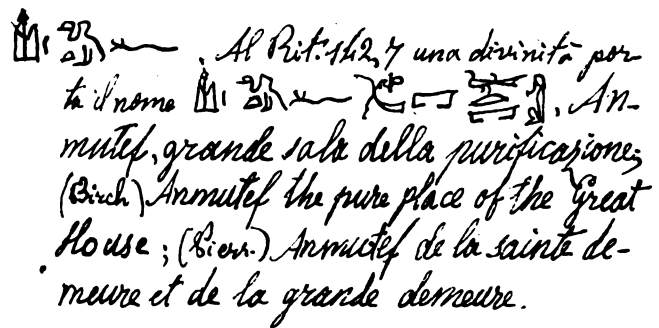 . Al Rit. 142, 7 una divinità por-
ta il nome . An-
mutef, grande sala della purificazione;
(Birch) Anmutef the pure place of the Great
House; (Pierr.) Anmutef de la sainte de-
meure et de la grande demeure.